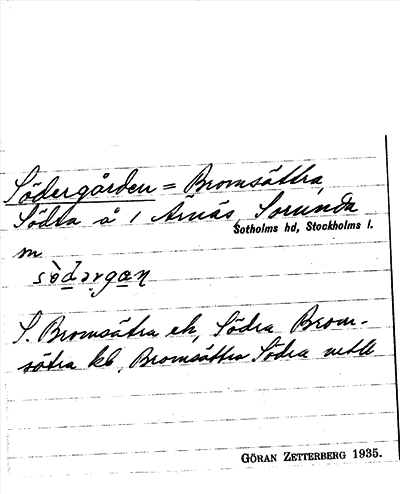 Södergården = Bromsättra,
Södra å / Årnäs, Sorunda
Sotholms hd, Stockholms l.
m
sǜdərgan
S. Bromsätra ek, Södra Brom-
sätra kb, Bromsättra Södra
GÖRAN ZETTERBERG 1935.